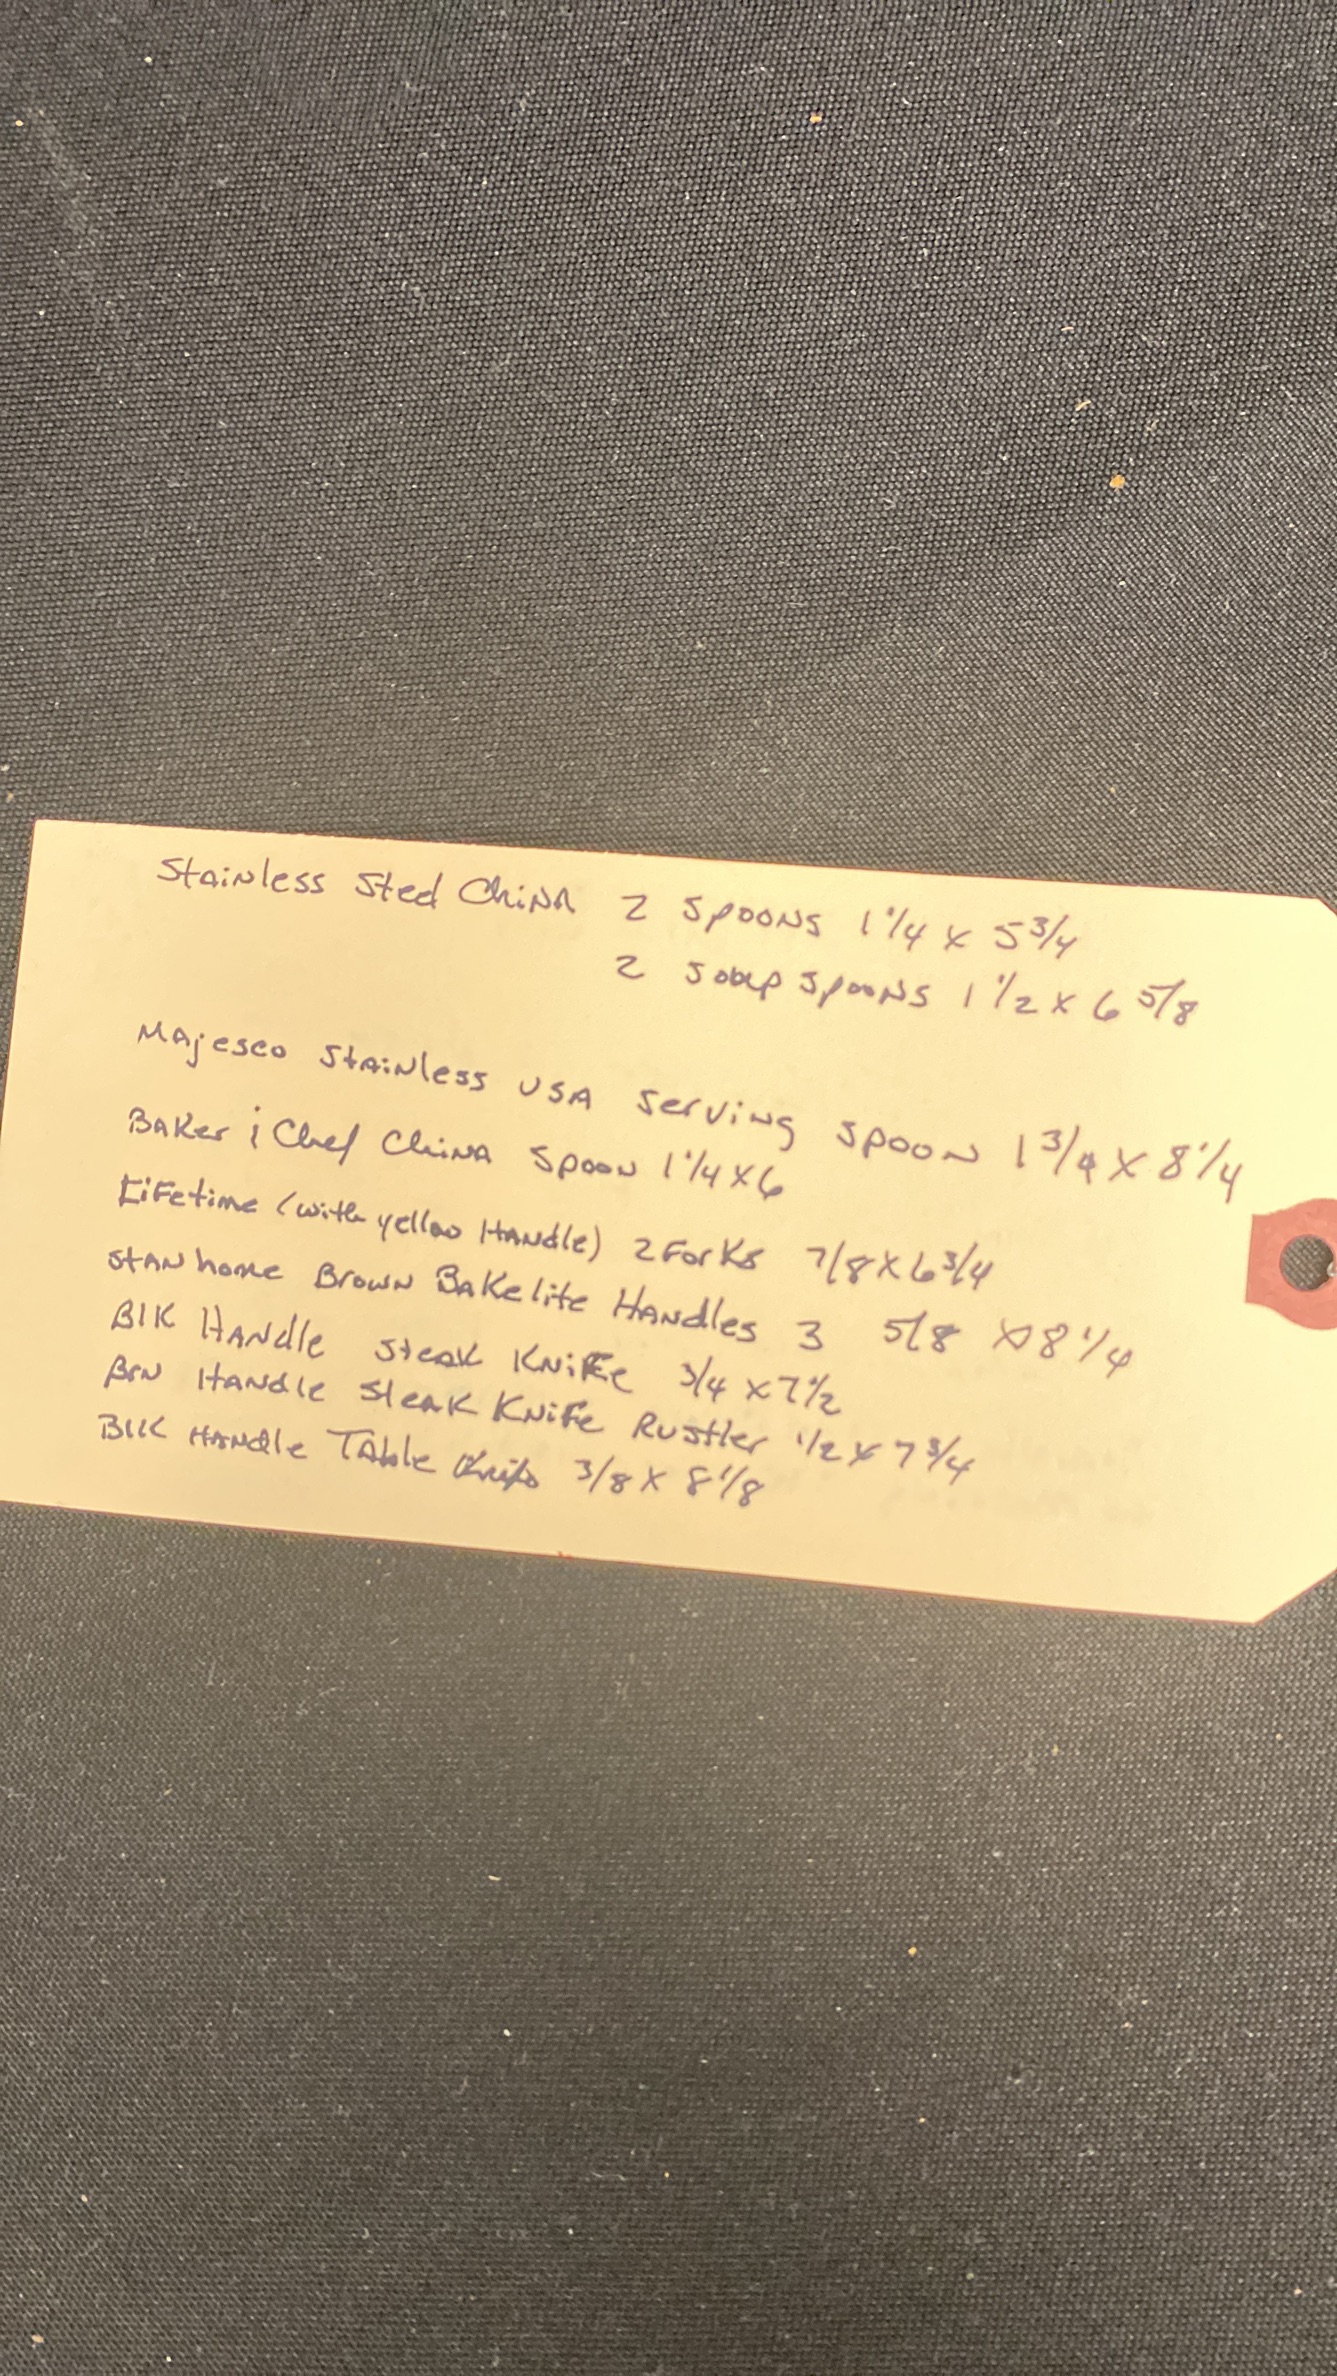 Stainless Steel China 2 Spoons 1 1/4 x 5 3/4
2 Soup Spoons 1 1/2 x 6 5/8
Majesco Stainless USA Serving Spoon 1 3/4 x 8 1/4
Baker & Chef China Spoon 1 1/4 x 6
Lifetime (with yellow Handle) 2 Forks 7/8 x 6 3/4
Stanhome Brown Bakelite Handles 3 5/8 x 8 1/4
Blk Handle Steak Knife 3/4 x 7 1/2
Brn Handle Steak Knife Rustler 1/2 x 7 3/4
Blk Handle Table Knife 3/8 x 8 1/8